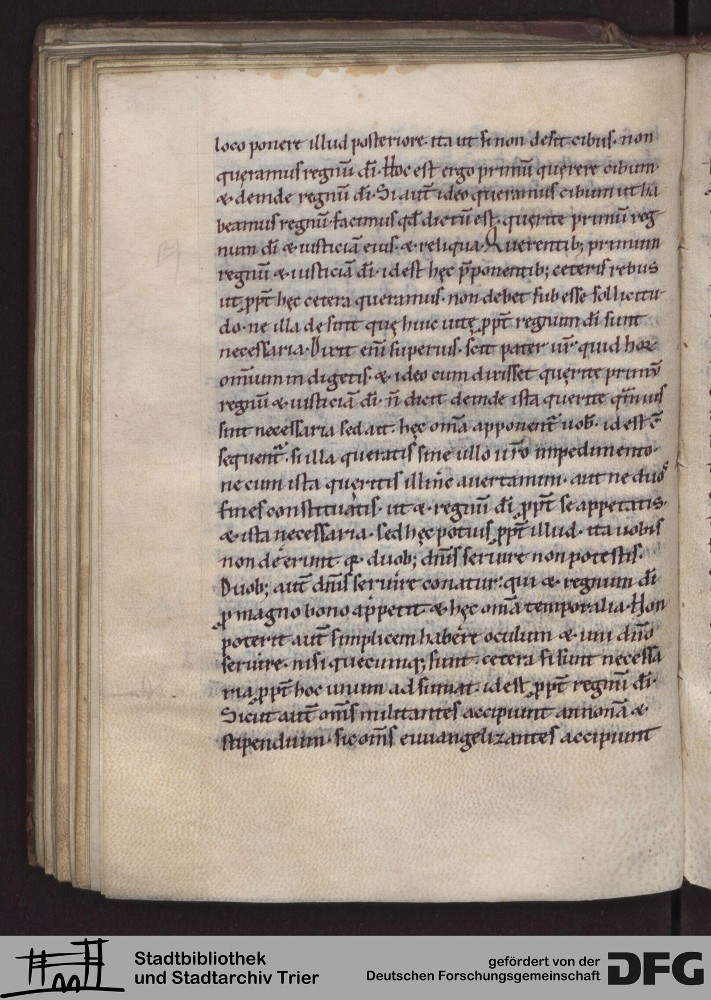 loco ponere illud posteriore· ita ut si non desit cibus· non
queramus regnū dī· Hoc est ergo primū querere cibum·
& deinde regnū dī· Si aut̄ ideo queramus cibum ut ha
beamus regnū· facimus qd̄ dictū est· querite primū reg
num dī & iusticiā eius· & reliqua· Querentib; primum
regnū & iusticiā dī· id est hęc p̄ponentib; ceteris rebus
ut ꝓpt̄ hęc cetera queramus· non debet subesse sollicitu
do· ne illa desint quę huic uitę ꝓpt̄ regnum dī sunt
necessaria· Dixit enī superius· scit pater ur̄· quid hoꝝ
omnium indigetis· & ideo cum dixisset querite primū
regnū & iusticiā dī· n̄ dicit deinde ista querite q̄muis
sint necessaria sed ait· hęc om̄a apponent̄ uob̄· id est c̄
sequent̄· si illa queratis sine ullo ur̄o impedimento·
ne cum ista queritis illinc auertamini· aut ne duos
fines constituatis· ut & regnū dī ꝓpt̄ se appetatis·
& ista necessaria· sed hęc potius ꝓpt̄ illud· ita uobis
non deerunt q̄· duob; dn̄is seruire non potestis·
Duob; aut̄ dn̄is seruire conatur· qui & regnum dī
ꝓ magno bono appetit & hęc om̄a temporalia· Non
poterit aut̄ simplicem habere oculum & uni dn̄o
seruire· nisi quecumq; sunt· cetera si sunt necessa
ria ꝓpt̄ hoc unum adsumat· id est ꝓpt̄ regnū dī·
Sicut aut̄ om̄s militantes accipiunt annonā &
stipendium· sic om̄s euuangelizantes accipiunt
Stadtbibliothek
und Stadtarchiv Trier
gefördert von der
Deutschen Forschungsgemeinschaft
DFG